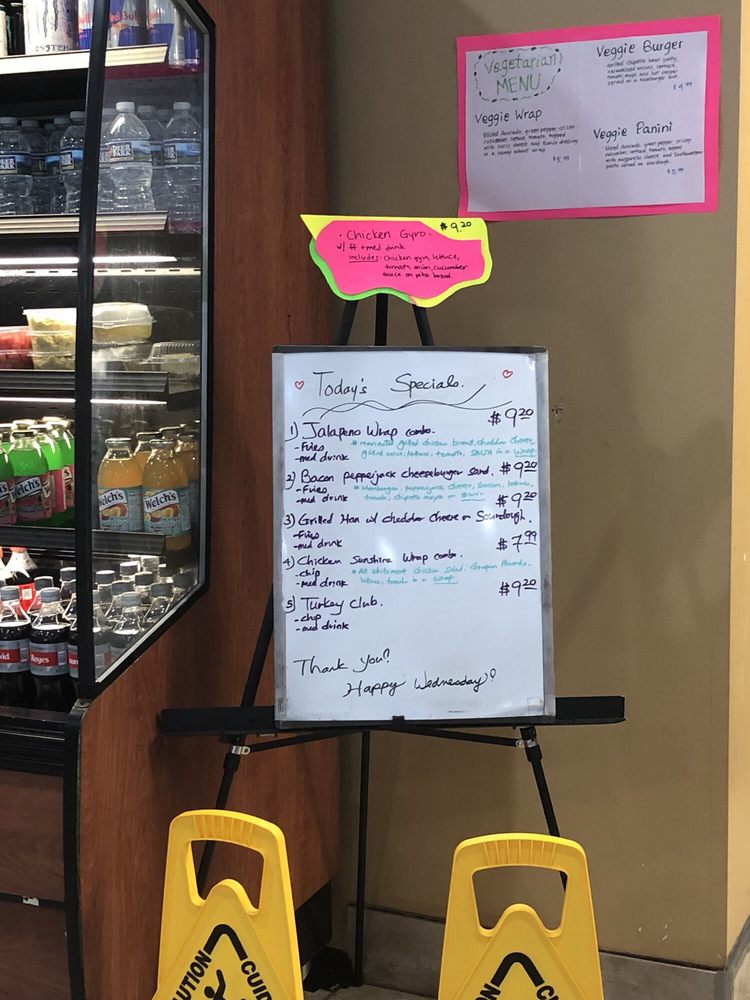 Vegetarian
MENU
Veggie Wrap
Sliced Avocado, green pepper, crispy
cucumber, lettuce, tomato, topped
with swiss cheese and Ranch dressing
in a Honey wheat wrap
$5.99
Veggie Burger
Grilled Chipotle bean patty,
caramelized onions, lettuce,
tomato, mayo, and hot pepper
served on a hamburger bun
$4.99
Veggie Panini
Sliced Avocado, green pepper, crispy
cucumber, lettuce, tomato, melted
with mozzarella cheese, and Southwestern
pesto served on sourdough.
$5.99
• Chicken Gyro. $9.20
w/ ff + med drink
includes: Chicken gyro, lettuce,
tomato, onion, cucumber
sauce on pita bread.
Today's Specials.
1) Jalapeno Wrap combo. $9.20
- Fries
- med drink
* marinated grilled chicken breast, cheddar cheese,
grilled onion, lettuce, tomato, SALSA in a Wrap
2) Bacon pepperjack cheeseburger sand. $9.20
- Fries
- med drink
* Hamburger, pepperjack cheese, Bacon, lettuce,
tomato, chipotle mayo on
3) Grilled Ham w/ cheddar cheese on Sourdough. $9.20
- Fries
- med drink
4) Chicken Sunshine Wrap combo. $7.99
- chip
- med drink
* All white meat chicken salad,
lettuce, tomato in a Wrap
5) Turkey Club. $9.20
- chip
- med drink
Thank you!
Happy Wednesday!
Welch's
Welch's
Welch's
CAUTION
CUIDADO